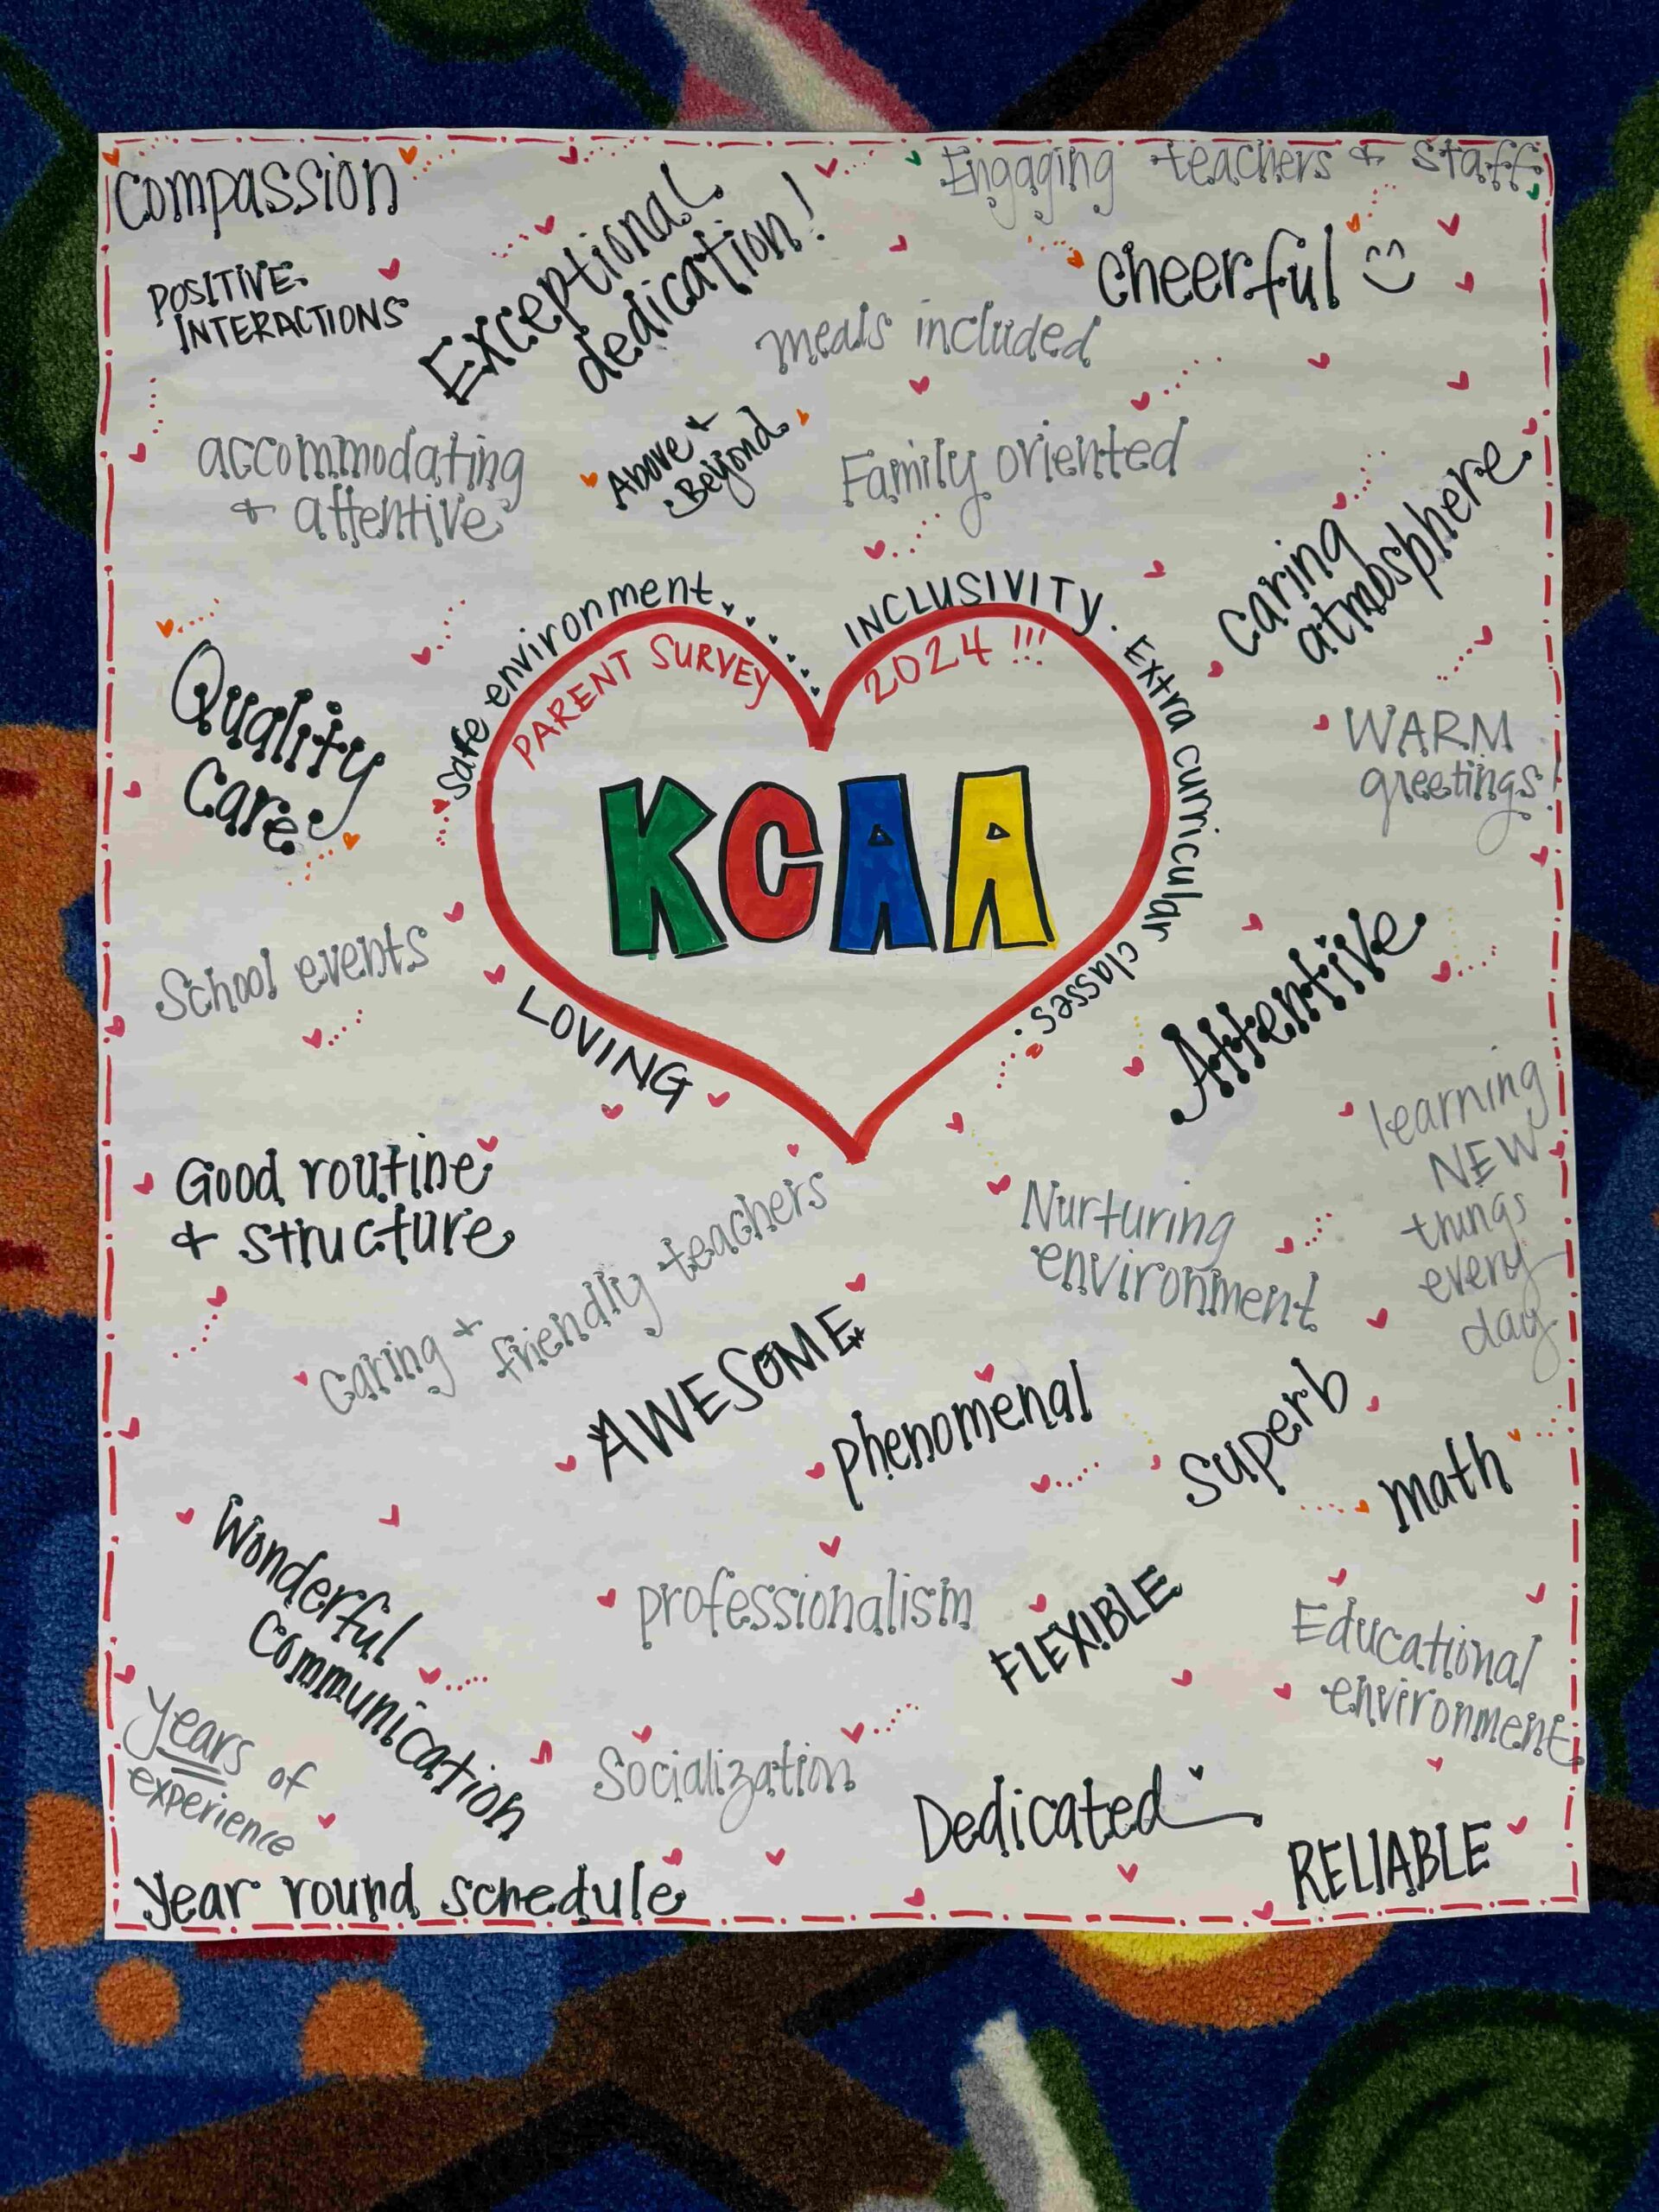 Compassion
Exceptional
dedication!
Engaging teachers & staff
cheerful
POSITIVE
INTERACTIONS
meals included
accommodating
& attentive
Above &
Beyond
Family oriented
caring
atmosphere
Safe environment
INCLUSIVITY.
Extra curricular classes.
PARENT SURVEY
2024 !!!
KCAA
LOVING
Quality
care
WARM
greetings!
School events
Attentive
learning
NEW
things
every
day
Good routine
& structure
Nurturing
environment
Caring &
friendly teachers
AWESOME
phenomenal
superb
math
Wonderful
communication
professionalism
FLEXIBLE
Educational
environment
years of
experience
Socialization
Dedicated
RELIABLE
year round schedule